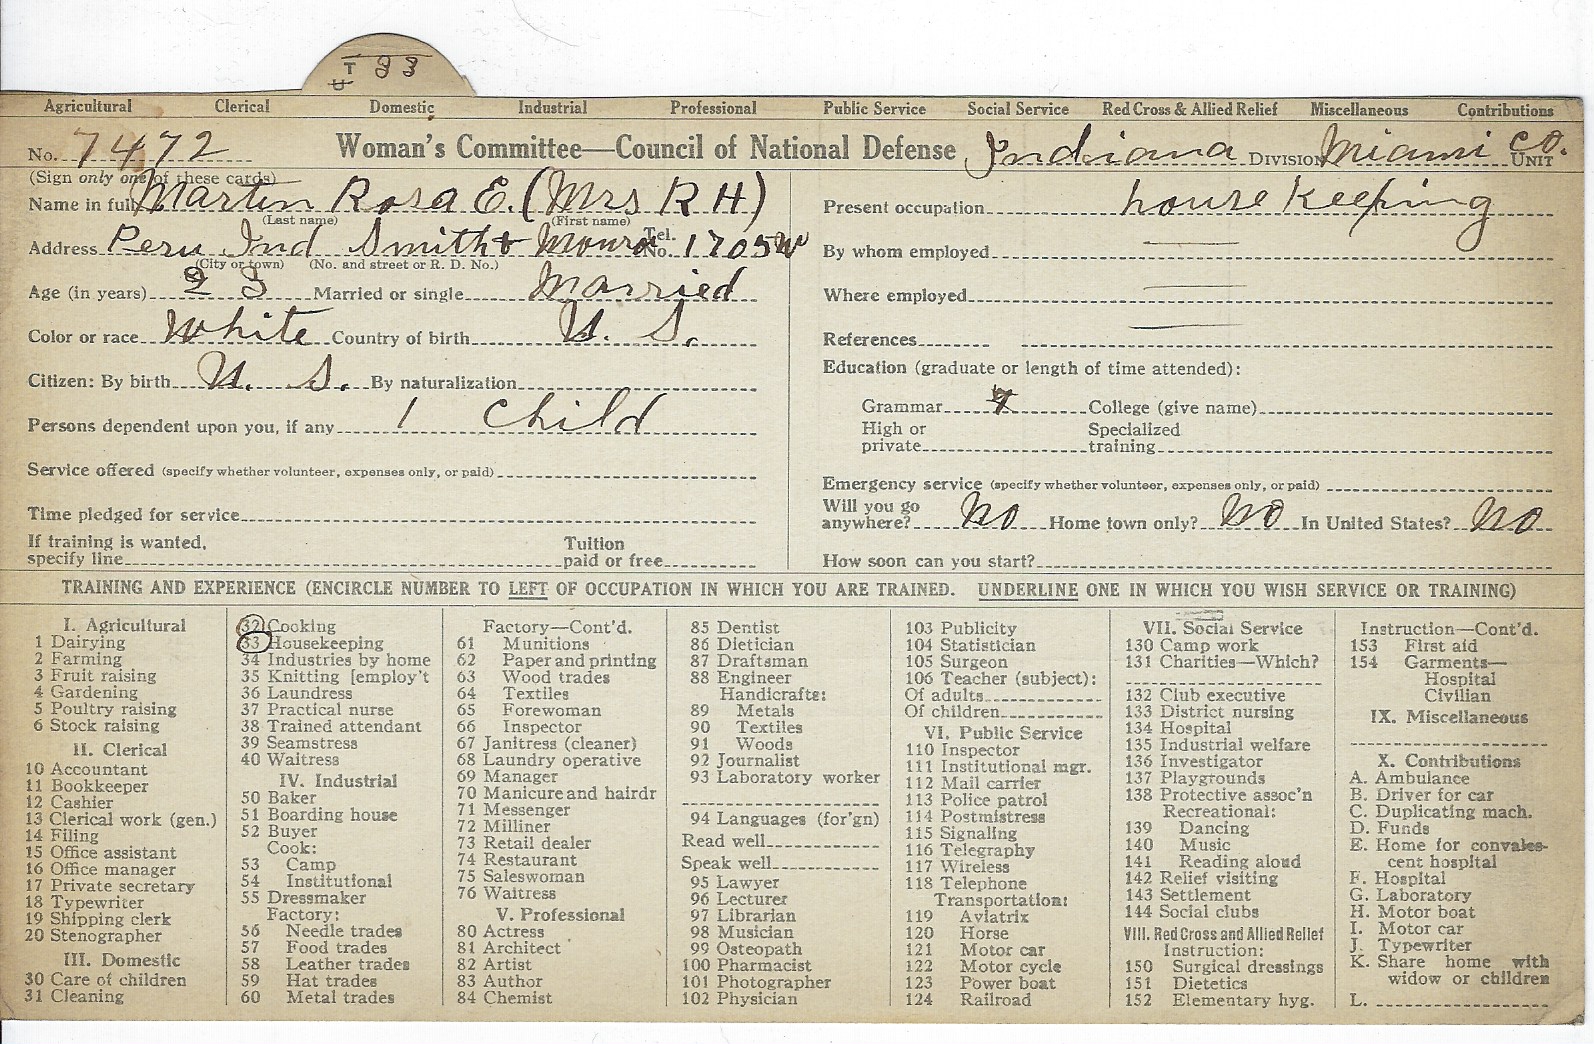 T 33
U
Agricultural Clerical Domestic Industrial Professional Public Service Social Service Red Cross & Allied Relief Miscellaneous Contributions
No. 7472 Woman's Committee—Council of National Defense Indiana DIVISION Miami Co. UNIT
(Sign only one of these cards)
Name in full Martin Rosa E. (Mrs R H)
(Last name) (First name)
Address Peru Ind Smith & Monro Tel. No. 1705W
(City or town) (No. and street or R. D. No.)
Age (in years) 23 Married or single Married
Color or race White Country of birth U. S.
Citizen: By birth U. S. By naturalization
Persons dependent upon you, if any 1 Child
Service offered (specify whether volunteer, expenses only, or paid)
Time pledged for service
If training is wanted, specify line Tuition paid or free
Present occupation house keeping
By whom employed
Where employed
References
Education (graduate or length of time attended):
Grammar 7 College (give name)
High or private Specialized training
Emergency service (specify whether volunteer, expenses only, or paid)
Will you go anywhere? No Home town only? No In United States? No
How soon can you start?
TRAINING AND EXPERIENCE (ENCIRCLE NUMBER TO LEFT OF OCCUPATION IN WHICH YOU ARE TRAINED. UNDERLINE ONE IN WHICH YOU WISH SERVICE OR TRAINING)
I. Agricultural
1 Dairying
2 Farming
3 Fruit raising
4 Gardening
5 Poultry raising
6 Stock raising
II. Clerical
10 Accountant
11 Bookkeeper
12 Cashier
13 Clerical work (gen.)
14 Filing
15 Office assistant
16 Office manager
17 Private secretary
18 Typewriter
19 Shipping clerk
20 Stenographer
III. Domestic
30 Care of children
31 Cleaning
32 Cooking
33 Housekeeping
34 Industries by home
35 Knitting [employ't
36 Laundress
37 Practical nurse
38 Trained attendant
39 Seamstress
40 Waitress
IV. Industrial
50 Baker
51 Boarding house
52 Buyer
Cook:
53 Camp
54 Institutional
55 Dressmaker
Factory:
56 Needle trades
57 Food trades
58 Leather trades
59 Hat trades
60 Metal trades
Factory—Cont'd.
61 Munitions
62 Paper and printing
63 Wood trades
64 Textiles
65 Forewoman
66 Inspector
67 Janitress (cleaner)
68 Laundry operative
69 Manager
70 Manicure and hairdr
71 Messenger
72 Milliner
73 Retail dealer
74 Restaurant
75 Saleswoman
76 Waitress
V. Professional
80 Actress
81 Architect
82 Artist
83 Author
84 Chemist
85 Dentist
86 Dietician
87 Draftsman
88 Engineer
Handicrafts:
89 Metals
90 Textiles
91 Woods
92 Journalist
93 Laboratory worker
94 Languages (for'gn)
Read well
Speak well
95 Lawyer
96 Lecturer
97 Librarian
98 Musician
99 Osteopath
100 Pharmacist
101 Photographer
102 Physician
103 Publicity
104 Statistician
105 Surgeon
106 Teacher (subject):
Of adults
Of children
VI. Public Service
110 Inspector
111 Institutional mgr.
112 Mail carrier
113 Police patrol
114 Postmistress
115 Signaling
116 Telegraphy
117 Wireless
118 Telephone
Transportation:
119 Aviatrix
120 Horse
121 Motor car
122 Motor cycle
123 Power boat
124 Railroad
VII. Social Service
130 Camp work
131 Charities—Which?
132 Club executive
133 District nursing
134 Hospital
135 Industrial welfare
136 Investigator
137 Playgrounds
138 Protective assoc'n
Recreational:
139 Dancing
140 Music
141 Reading aloud
142 Relief visiting
143 Settlement
144 Social clubs
VIII. Red Cross and Allied Relief
Instruction:
150 Surgical dressings
151 Dietetics
152 Elementary hyg.
Instruction—Cont'd.
153 First aid
154 Garments—
Hospital
Civilian
IX. Miscellaneous
X. Contributions
A. Ambulance
B. Driver for car
C. Duplicating mach.
D. Funds
E. Home for convales-
cent hospital
F. Hospital
G. Laboratory
H. Motor boat
I. Motor car
J. Typewriter
K. Share home with
widow or children
L.